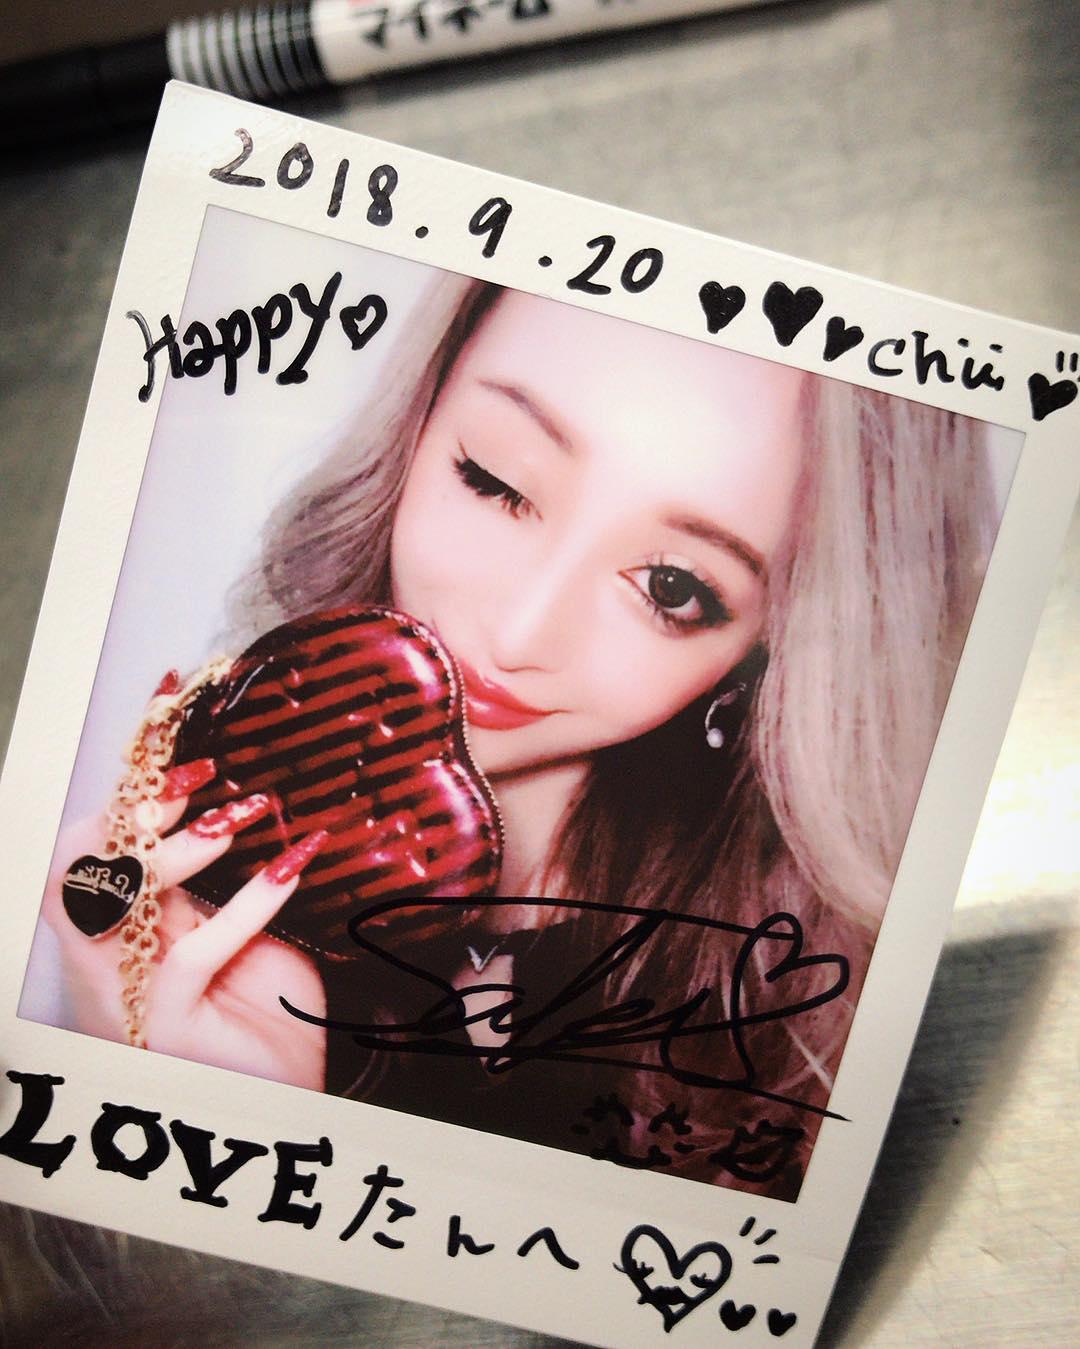 マイネーム
2018.9.20 ♥♥♥chu♥
Happy♡
LOVEたんへ